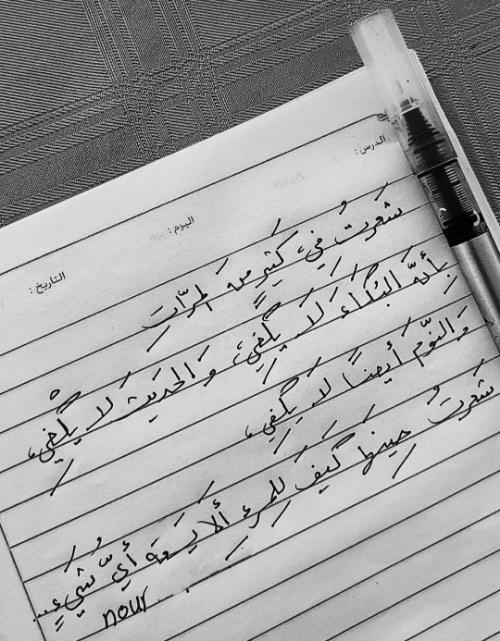 الدرس:
اليوم:
التاريخ:
شَعَرتُ فِي، كَثِيرٍ مِنَ المَرّاتِ
بِأنَّ البُكَاءَ لَا يَكْفِي، وَالحَدِيثَ لَا يَكْفِي،
وَالنَّومَ أَيضًا لَا يَكْفِي،
شَعَرتُ حِينَهَا كَيفَ لِلمَرءِ أَلَّا يَسَعَهُ أَيُّ شَيْءٍ..
nour